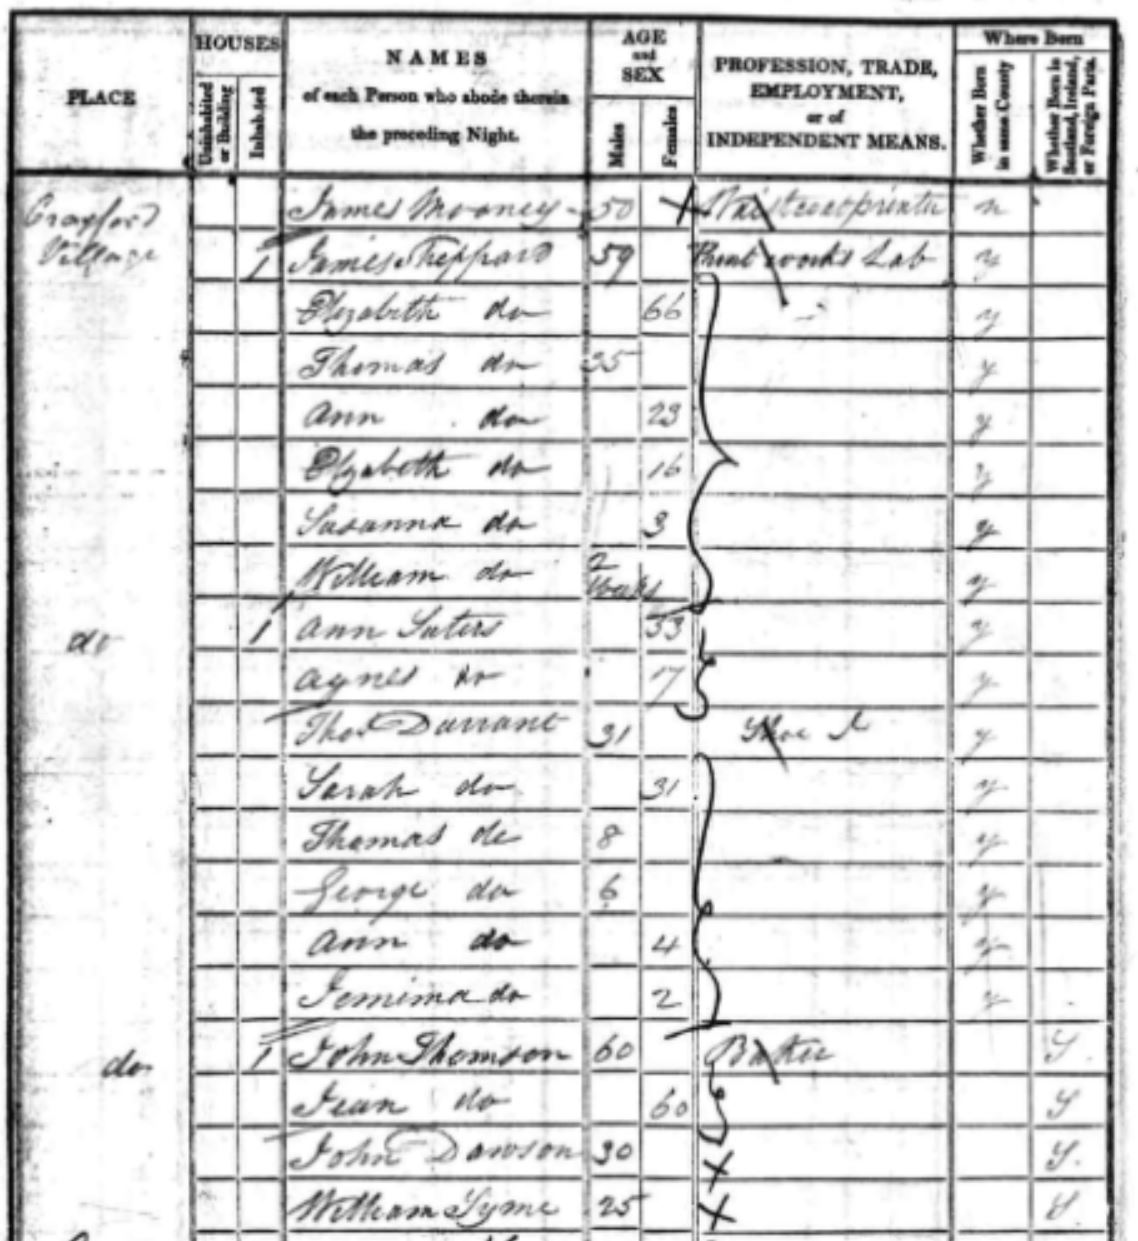 PLACE
HOUSES
Uninhabited or Building
Inhabited
NAMES
of each Person who abode therein
the preceding Night.
AGE
and
SEX
Males
Females
PROFESSION, TRADE,
EMPLOYMENT,
or of
INDEPENDENT MEANS.
Where Born
Whether Born in same County
Whether Born in Scotland, Ireland, or Foreign Parts.
Crayford James Mooney 50 n
Village 1 James Sheppard 59 Print works Lab y
Elizabeth do 66 y
Thomas do 35 y
Ann do 23 y
Elizabeth do 16 y
Susanna do 3 y
William do 2 Weeks y
do 1 Ann Suters 53 y
Agnes do 17 y
Thos Darrant 31 Shoe y
Sarah do 31 y
Thomas do 8 y
George do 6 y
Ann do 4 y
Jemima do 2 y
do 1 John Thomson 60 Baker S.
Jean do 60 S
John Dawson 30 S.
William Syme 25 S.